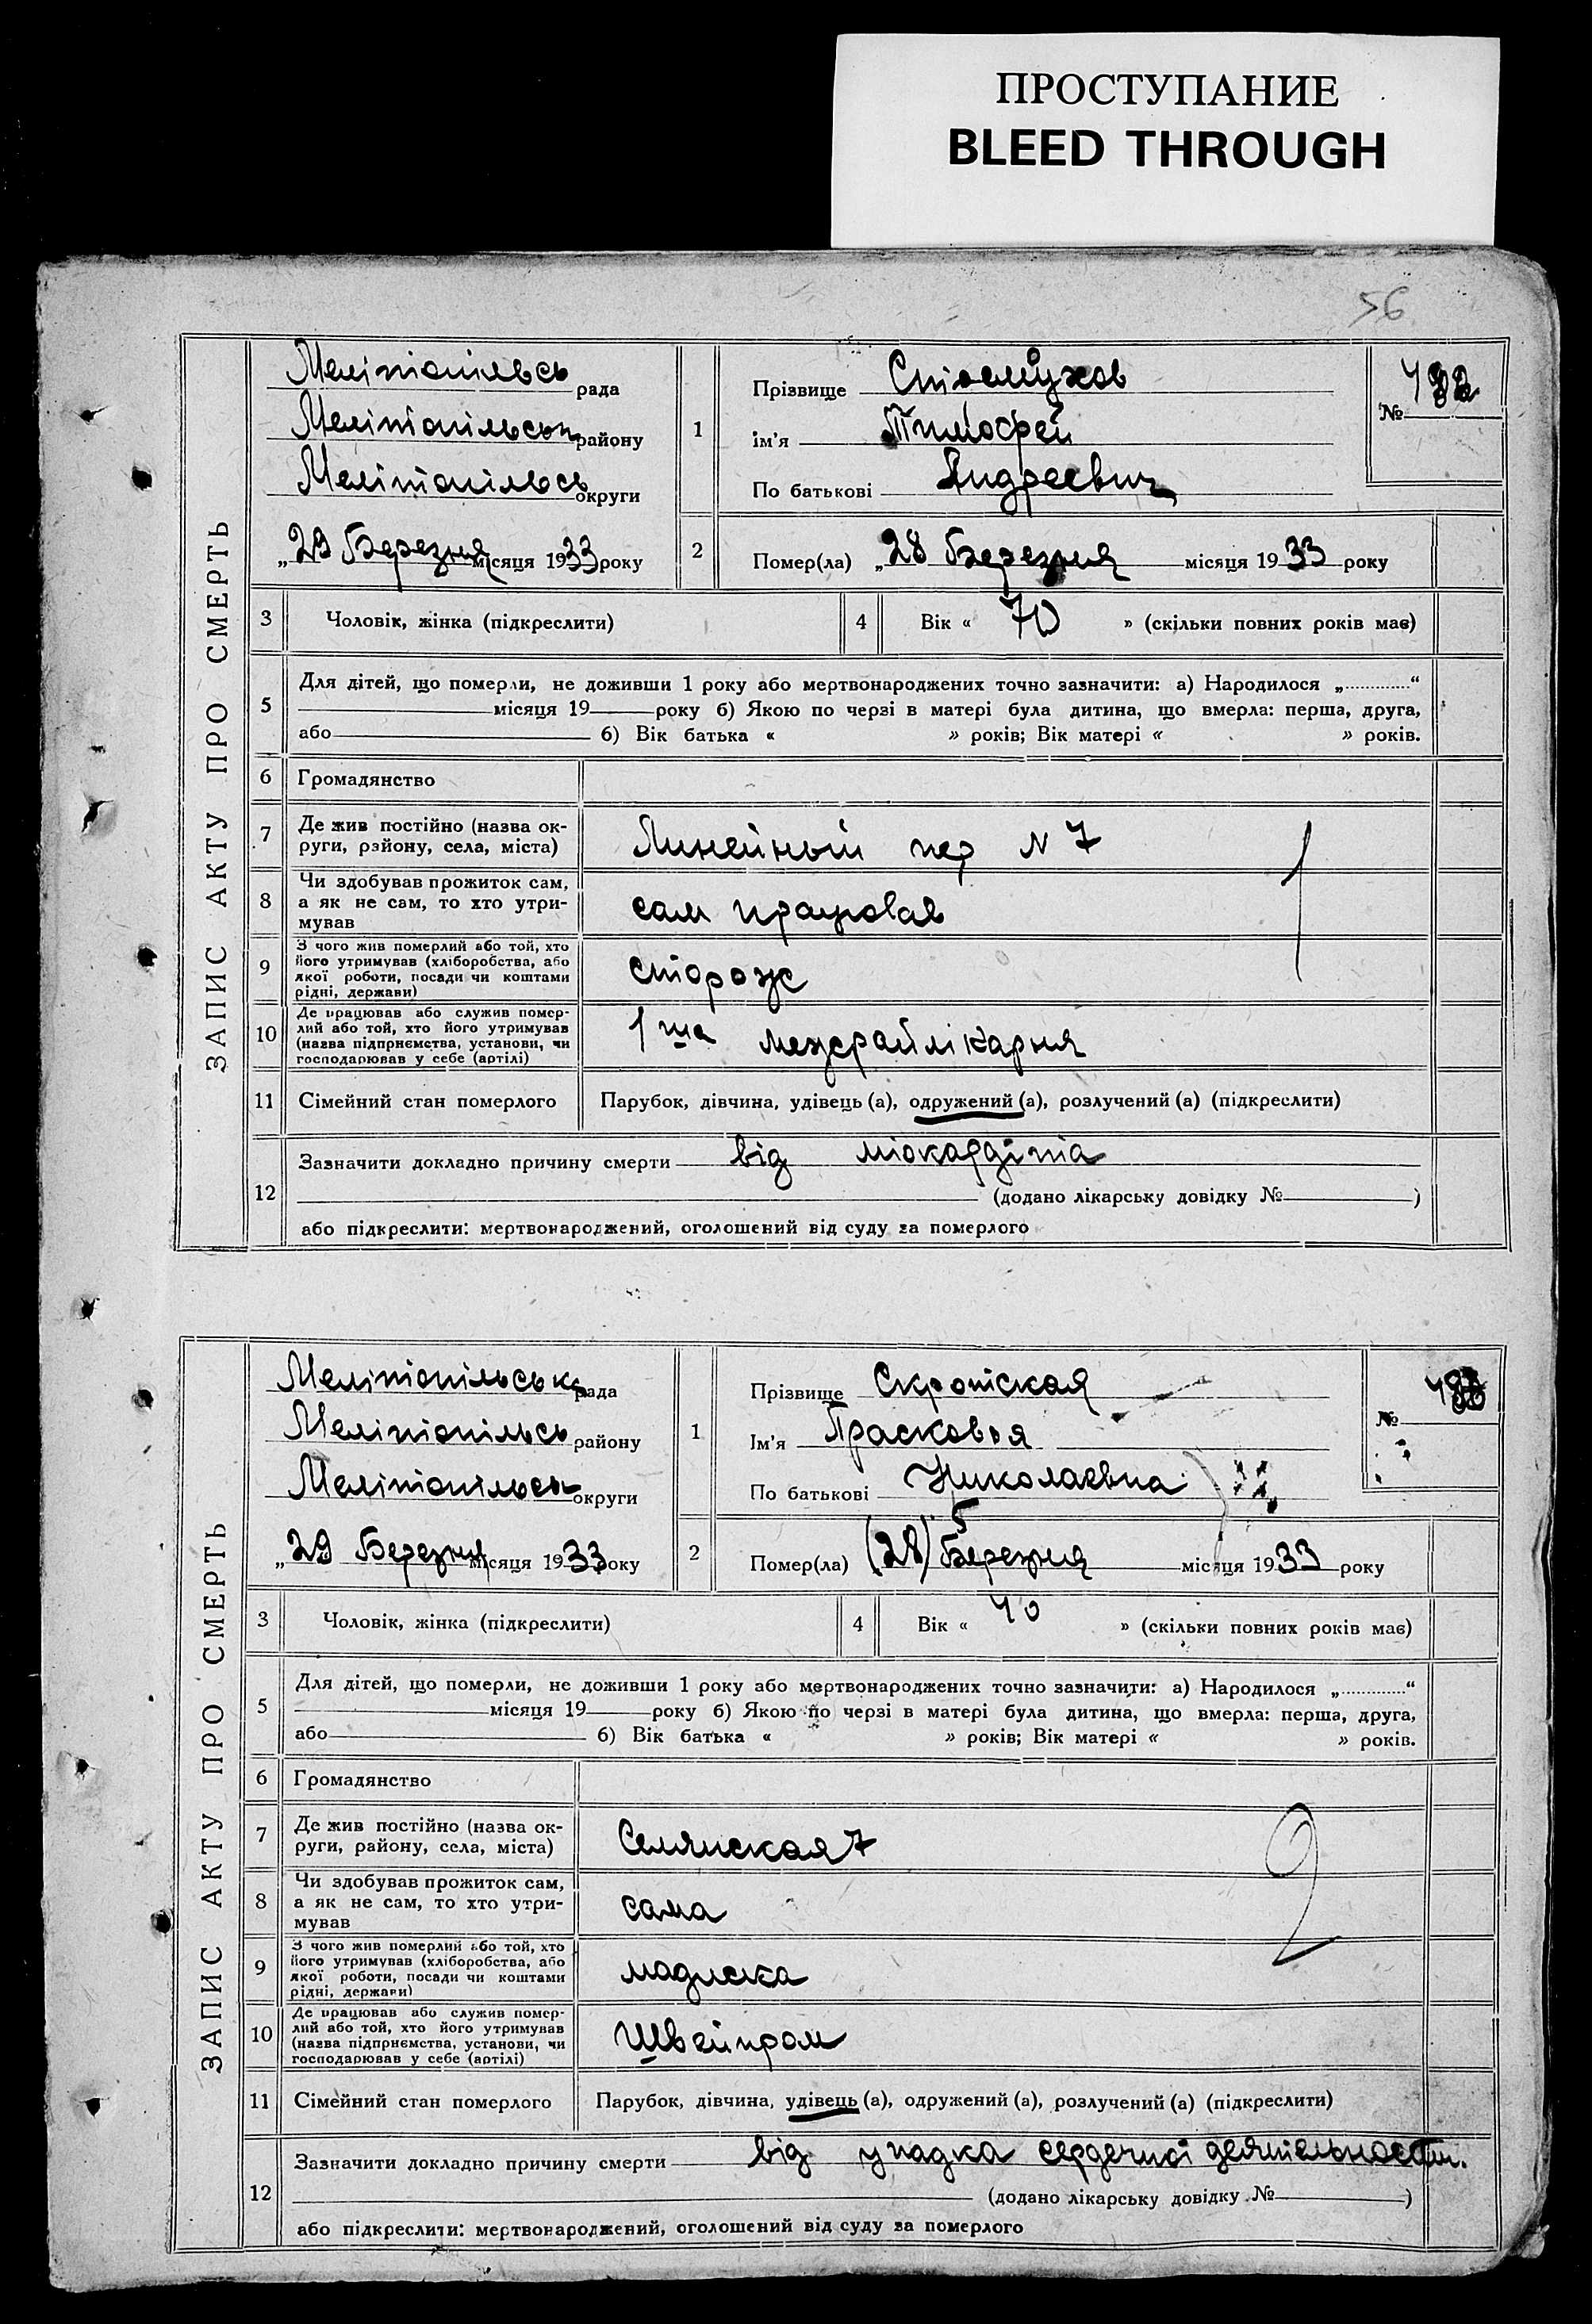 ПРОСТУПАНИЕ
BLEED THROUGH
56
ЗАПИС АКТУ ПРО СМЕРТЬ
Мелітопільсь рада
Мелітопільськ району
Мелітопільсь округи
„29 Березня місяця 1933 року
1
Прізвище
ім'я Тимофей
По батькові Андреевич
№
2
Помер(ла) „28 Березня місяця 1933 року
3 Чоловік, жінка (підкреслити)
4 Вік « 70 » (скільки повних років має)
5 Для дітей, що померли, не доживши 1 року або мертвонароджених точно зазначити: а) Народилося „............“
місяця 19 року б) Якою по черзі в матері була дитина, що вмерла: перша, друга,
або б) Вік батька « » років; Вік матері « » років.
6 Громадянство
7 Де жив постійно (назва ок-
руги, району, села, міста)
Линейный пер N 7
1
8 Чи здобував прожиток сам,
а як не сам, то хто утри-
мував
сам працював
9 З чого жив померлий або той, хто
його утримував (хліборобства, або
якої роботи, посади чи коштами
рідні, держави)
сторож
10 Де працював або служив помер-
лий або той, хто його утримував
(назва підприємства, установи, чи
господарював у себе (артілі)
1ша межрайлікарня
11 Сімейний стан померлого
Парубок, дівчина, удівець (а), одружений (а), розлучений (а) (підкреслити)
12 Зазначити докладно причину смерти від міокардіта
(додано лікарську довідку № )
або підкреслити: мертвонароджений, оголошений від суду за померлого
ЗАПИС АКТУ ПРО СМЕРТЬ
Мелітопільськ рада
Мелітопільсь району
Мелітопільськ округи
„29 Березня місяця 1933 року
1
Прізвище Скротская
Ім'я Прасковья
По батькові Николаевна
№
2
Помер(ла) (28) Березня місяця 1933 року
3 Чоловік, жінка (підкреслити)
4 Вік « 40 » (скільки повних років має)
5 Для дітей, що померли, не доживши 1 року або мертвонароджених точно зазначити: а) Народилося „............“
місяця 19 року б) Якою по черзі в матері була дитина, що вмерла: перша, друга,
або б) Вік батька « » років; Вік матері « » років.
6 Громадянство
7 Де жив постійно (назва ок-
руги, району, села, міста)
Селянская 7
2
8 Чи здобував прожиток сам,
а як не сам, то хто утри-
мував
сама
9 З чого жив померлий або той, хто
його утримував (хліборобства, або
якої роботи, посади чи коштами
рідні, держави)
модистка
10 Де працював або служив помер-
лий або той, хто його утримував
(назва підприємства, установи, чи
господарював у себе (артілі)
Швейпром
11 Сімейний стан померлого
Парубок, дівчина, удівець (а), одружений (а), розлучений (а) (підкреслити)
12 Зазначити докладно причину смерти від упадка сердечної деятельности.
(додано лікарську довідку № )
або підкреслити: мертвонароджений, оголошений від суду за померлого